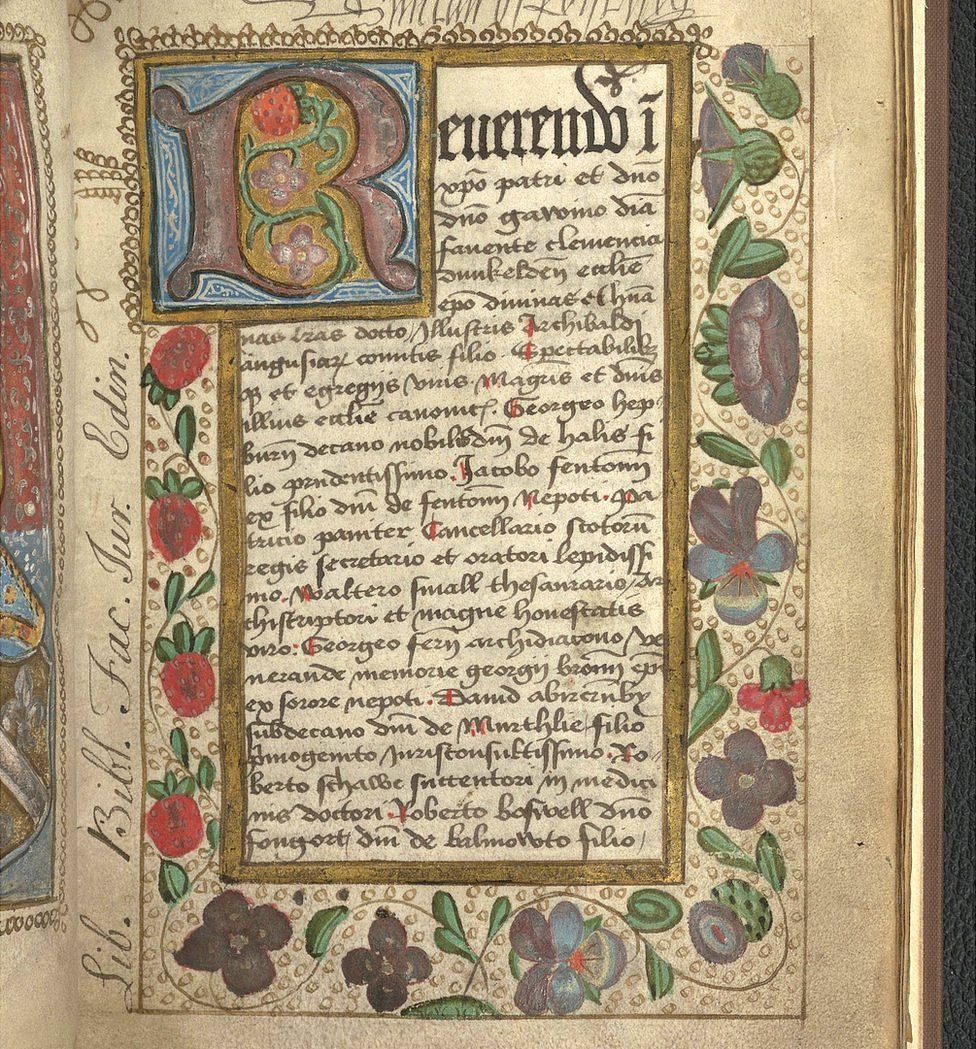 Reuerendo ī
xpō patri et dnō
dnō gawino diā
fauente clemencia
dunkeldeñ ecclīe
epō diuinas et hūa
nas lr̄as docto / Illustris Archibaldi
angusiaꝝ comitis filio . Spectabilibꝫ
qꝫ et egregijs viris . Magr̄is et dnīs
illius ecclīe canonicꝭ . Georgeo hep
burn̄ decano nobilis dnī de halis fi
lio prudentissimo . Jacobo fentoun̄
ex filio dnī de fentoun̄ Nepoti . Pa
tricio paniter Cancellario scotorū
regis secretario et oratori lepidissi
mo . Waltero small thesaurario / Ar
chiscriptori et magne honestatis
viro : Georgeo fern̄ archidiacono / Ve
nerande memorie georgij broun̄ epī
ex sorore nepoti . Dauid abircrūby
subdecano dnī de Murthlie filio
primogenito Jurisconsultissimo . Ro
berto schawe succentori in medici
nis doctori . Roberto boswell dnō
fongort / dnī de balmowto filio /
Lib. Bibl. Fac. Jur. Edin.